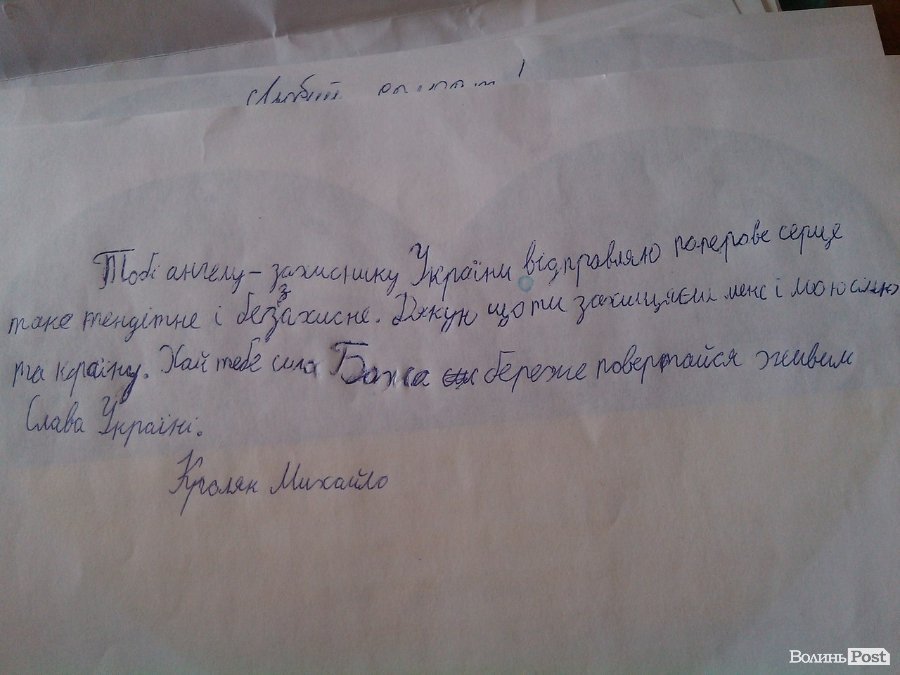 Любий
Тобі ангелу - захиснику України відправляю паперове серце
таке тендітне і беззахисне. Дякую що ти захищаєш мене і мою сім'ю
та країну. Хай тебе сила Божа береже повертайся живим
Слава Україні.
Кроляк Михайло
ВолиньPost